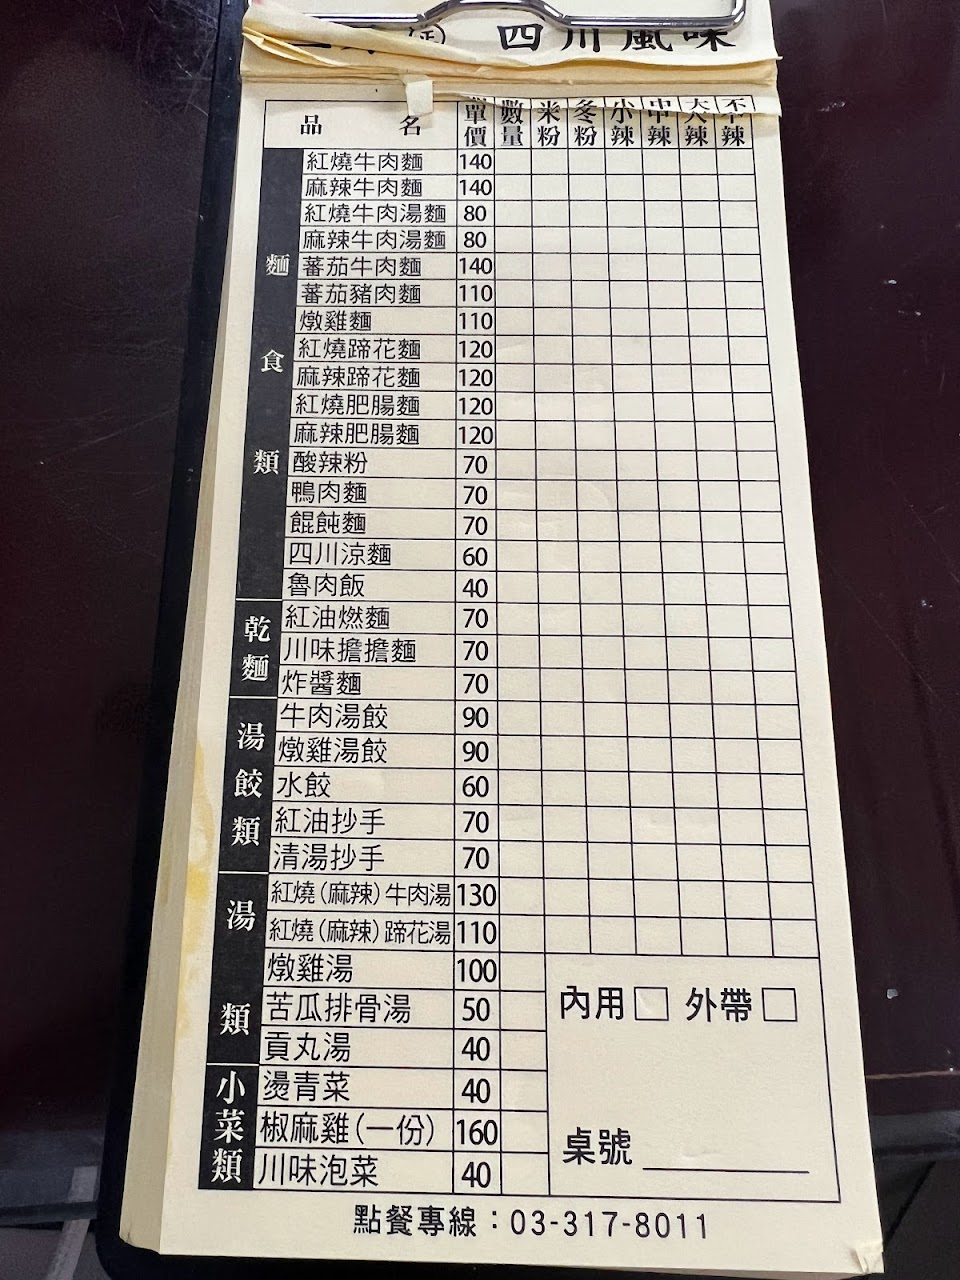 四川風味
品名 單價 數量 米粉 冬粉 小辣 中辣 大辣 不辣
麵食類
紅燒牛肉麵 140
麻辣牛肉麵 140
紅燒牛肉湯麵 80
麻辣牛肉湯麵 80
蕃茄牛肉麵 140
蕃茄豬肉麵 110
燉雞麵 110
紅燒蹄花麵 120
麻辣蹄花麵 120
紅燒肥腸麵 120
麻辣肥腸麵 120
酸辣粉 70
鴨肉麵 70
餛飩麵 70
四川涼麵 60
魯肉飯 40
乾麵
紅油燃麵 70
川味擔擔麵 70
炸醬麵 70
湯餃類
牛肉湯餃 90
燉雞湯餃 90
水餃 60
紅油抄手 70
清湯抄手 70
湯類
紅燒(麻辣)牛肉湯 130
紅燒(麻辣)蹄花湯 110
燉雞湯 100
苦瓜排骨湯 50
貢丸湯 40
小菜類
燙青菜 40
椒麻雞(一份) 160
川味泡菜 40
內用□ 外帶□
桌號
點餐專線：03-317-8011